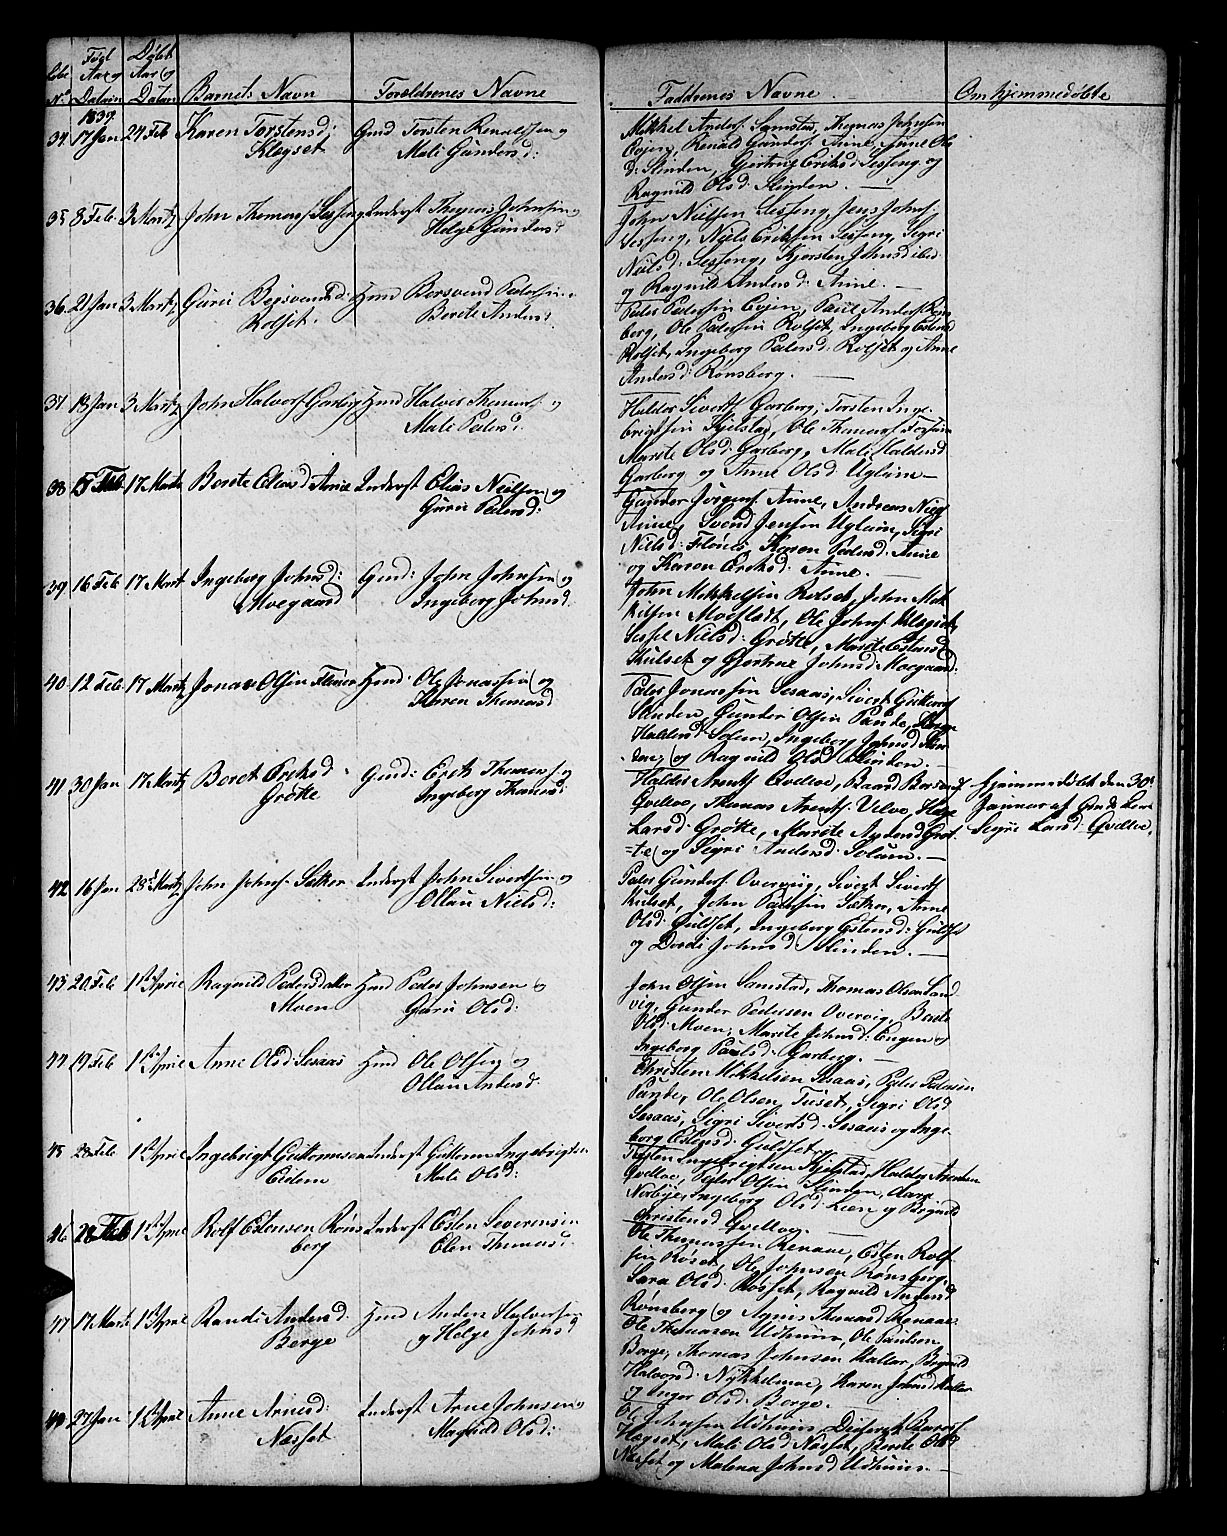 Lobe Født Døbt
Aar og Aar og
No Datum Datum Barnets Navn Forældrenes Navne Faddrenes Navne Om hjemmedøbte
1837
34 17 Jan 24 Feb Karen Torstensd: Gmd Torsten Renaldsen og
Klegset Mali Gundersd:
Mikkel Anders. Samstad, Thomas Johnsen
Evjen, Renald Gunders. Aune, Anne Ols
d: Slinden, Gjertrug Eriksd: Sesseng og
Ragnild Olsd: Slinden. —
35 8 Feb 3 Martz John Thomas. Sesseng Inderst Thomas Johnsen og
Helge Gundersd
John Nielsen Sesseng, Jens Johns.
Sesseng, Niels Eriksen Sesseng, Segri
Nielsd: Sesseng, Kjersten Johnsd ibid
og Ragnild Andersd: Aune. —
36 21 Jan 3 Martz Guru Bersvendsd: Hmd Bersvend Pedersen og
Rolset. Berete Andersd.
Peder Pedersen Evjen, Paul Anders. Røns
berg, Ole Pedersen Rolset, Ingeborg Estensd
Rolset, Ingeborg Pedersd: Rolset og Anne
Andersd: Rønsberg. —
37 18 Jan 3 Martz John Halvors. Garberg Hmd Halvor Thomas. og
Mali Pedersd:
Haldor Siverts. Garberg, Torsten Inge-
brigtsen Kjelstad, Ole Thomas.
Marite Olsd: Garberg, Mali Haldorsd
Garberg og Anne Olsd: Uglum —
38 15 Feb 17 Martz Berete Eliasd Aune Inderst Elias Nielsen og
Guru Pedersd:
Gunder Jørgens. Aune, Andreas Niels.
Aune, Svend Jensen Uglum, Segri
Nielsd: Flønes, Karen Pedersd: Aune
og Karen Eriksd: Aune. —
39 16 Feb 17 Mart Ingeborg Johnsd: Gmd: John Johnsen og
Moegaard Ingeborg Johnsd
John Mikkelsen Rolset, John Mik
kelsen Moeslødt, Ole Johns. Klegset,
Sessel Nielsd: Grøtte, Marite Estensd
Kulset og Gjertrue Johnsd: Moegaard.
40 12 Feb 17 Martz Jonas Olsen Flønes Hmd. Ole Jonassen og
Karen Thomasd
Peder Jonassen Sesaas, Sivert Guttorms.
Slinden, Gunder Olsen Pande, Helge
Haldorsd Solem, Ingeborg Johnsd Slin
den, og Ragnild Olsd Slinden.
41 30 Jan 17 Martz Beret Eriksd. Gmd: Erik Thomas. og
Grøtte Ingeborg Thomasd:
Haldor Arents. Qvelloe, Baard Bersvends.
Qvelloe, Thomas Arents. Velve,
Larsd: Grøtte, Marite Andersd Grøt-
=te og Segri Andersd: Solum. —
hjemmedøbt den 30te
Januar af
Segri Larsd: Qvelloe.
42 16 Jan 28d Martz John Johns. Sether Inderst John Sivertsen og
Ollau Nielsd:
Peder Gunders. Overviig, Sivert Siverts.
Kulset, John Pedersen Sæther, Anne
Olsd: Guldset, Ingeborg Estensd: Guldset
og Dordi Johnsd: Slinden. —
43 20 Feb 1st Aprie Ragnild Pedersdatter Hmd Peder Johnsen og
Moen Guru Olsd:
John Olsen Samstad, Thomas Olsen Sand
vig, Gunder Pedersen Overvig, Berete
Olsd: Moen, Marite Johnsd: Engen og
Ingeborg Paulsd: Garberg. —
44 19 Feb 1st Aprie Anne Olsd: Sesaas Hmd Ole Olsen og
Ollau Andersd:
Christen Mikkelsen Sesaas, Peder Pedersen
Pande, Ole Olsen Tuset, Segri Olsd
Sesaas, Sigri Sivertsd: Sesaas og Inge-
borg Estensd: Guldset. —
45 28 Feb 1st Aprie Ingebrigt Guttormsen Inderst Guttorm Ingebrigtsen
Eidem Mali Olsd:
Torsten Ingebrigtsen Kjelstad, Haldor Arentsen
Qvelloe, Peder Olsen Slinden,
Norbye, Ingeborg Olsd: Lien og Brynild
Christensd Qvelloe. —
46 28 Feb 1st Aprie Rolf Estensen Røns Inderst Esten Severinsen
berg Elen Thomasd:
Ole Thomassen Renaae, Esten Rolf
sen Røset, Ole Johnsen Rønsberg,
Sara Olsd: Røsset, Ragnild Andersd
Rønsberg og Agnis Thomasd Renaae.
47 17 Mart 1st Aprie Randi Andersd: Hmd Anders Halvorsen
Berge og Helge Johnsd
Ole Thomasen Udhuus, Ole Paulsen
Berge, Thomas Johnsen Møller, Brynild
Halvorsd: Nykkelmoe, Karen Johnsd Møller
og Inger Olsd: Berge. —
48 27 Jan 1st Aprie Anne Arnesd: Inderst Arne Johnsen og
Næsset Magnild Olsd:
Ole Johnsen Udhuus, Diderik Baards.
Hegset, Mali Olsd Næsset, Berete Olsd
Næsset og Malena Johnsd Udhuus. —